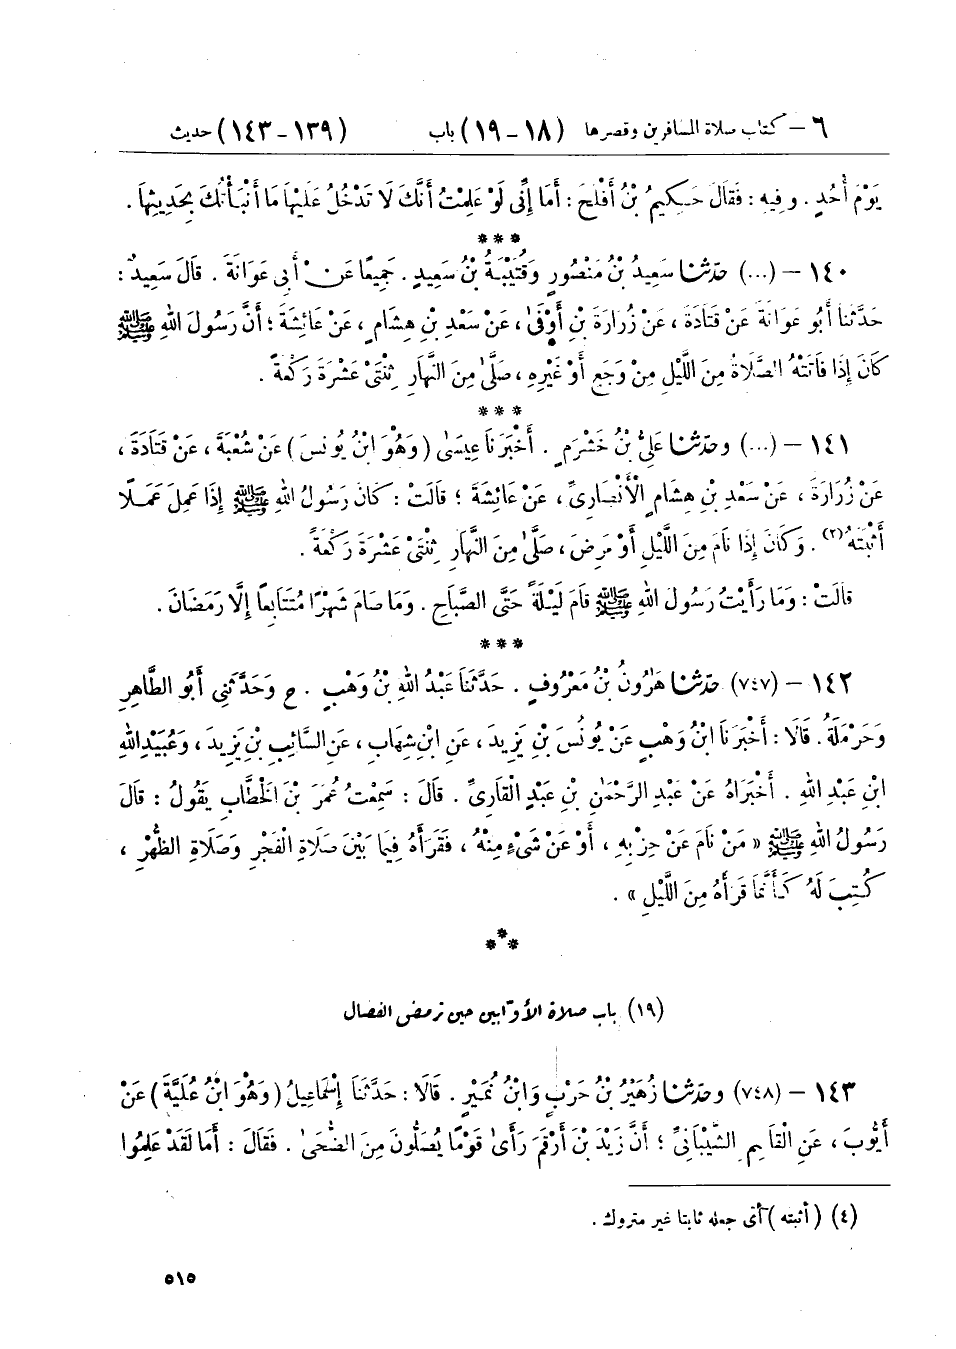 ٦ – كتاب صلاة المسافرين وقصرها (١٨ - ١٩) باب (١٣٩ - ١٤٣) حديث
يَوْمَ أُحُدٍ . وفِيهِ : فَقَالَ حَكِيمُ بْنُ أَفْلَحَ : أَمَا إِنِّى لَوْ عَلِمْتُ أَنَّكَ لَا تَدْخُلُ عَلَيْهَا مَا أَنْبَأْتُكَ بِحَدِيثِهَا .
***
١٤٠ – (...) حَدَّثَنَا سَعِيدُ بْنُ مَنْصُورٍ وَقُتَيْبَةُ بْنُ سَعِيدٍ . جَمِيعًا عَنْ أَبِى عَوَانَةَ . قَالَ سَعِيدٌ :
حَدَّثَنَا أَبُو عَوَانَةَ عَنْ قَتَادَةَ ، عَنْ زُرَارَةَ بْنِ أَوْفَىٰ ، عَنْ سَعْدِ بْنِ هِشَامٍ ، عَنْ عَائِشَةَ ؛ أَنَّ رَسُولَ اللهِ ﷺ
كَانَ إِذَا فَاتَتْهُ الصَّلَاةُ مِنَ اللَّيْلِ مِنْ وَجَعٍ أَوْ غَيْرِهِ ، صَلَّىٰ مِنَ النَّهَارِ ثِنْتَىْ عَشْرَةَ رَكْعَةً .
***
١٤١ – (...) وحَدَّثَنَا عَلِىُّ بْنُ خَشْرَمٍ . أَخْبَرَنَا عِيسَىٰ (وَهُوَ ابْنُ يُونُسَ) عَنْ شُعْبَةَ ، عَنْ قَتَادَةَ ،
عَنْ زُرَارَةَ ، عَنْ سَعْدِ بْنِ هِشَامٍ الْأَنْصَارِىِّ ، عَنْ عَائِشَةَ ؛ قَالَتْ : كَانَ رَسُولُ اللهِ ﷺ إِذَا عَمِلَ عَمَلًا
أَثْبَتَهُ(٢) . وَكَانَ إِذَا نَامَ مِنَ اللَّيْلِ أَوْ مَرِضَ ، صَلَّىٰ مِنَ النَّهَارِ ثِنْتَىْ عَشْرَةَ رَكْعَةً .
قَالَتْ : وَمَا رَأَيْتُ رَسُولَ اللهِ ﷺ قَامَ لَيْلَةً حَتَّى الصَّبَاحِ . وَمَا صَامَ شَهْرًا مُتَتَابِعًا إِلَّا رَمَضَانَ .
***
١٤٢ – (٧٤٧) حَدَّثَنَا هَرُونُ بْنُ مَعْرُوفٍ . حَدَّثَنَا عَبْدُ اللهِ بْنُ وَهْبٍ . ح وَحَدَّثَنِى أَبُو الطَّاهِرِ
وَحَرْمَلَةُ . قَالَا : أَخْبَرَنَا ابْنُ وَهْبٍ عَنْ يُونُسَ بْنِ يَزِيدَ ، عَنِ ابْنِ شِهَابٍ ، عَنِ السَّائِبِ بْنِ يَزِيدَ ، وَعُبَيْدِ اللهِ
ابْنِ عَبْدِ اللهِ . أَخْبَرَاهُ عَنْ عَبْدِ الرَّحْمَٰنِ بْنِ عَبْدٍ الْقَارِىِّ . قَالَ : سَمِعْتُ عُمَرَ بْنَ الْخَطَّابِ يَقُولُ : قَالَ
رَسُولُ اللهِ ﷺ « مَنْ نَامَ عَنْ حِزْبِهِ ، أَوْ عَنْ شَىْءٍ مِنْهُ ، فَقَرَأَهُ فِيمَا بَيْنَ صَلَاةِ الْفَجْرِ وَصَلَاةِ الظُّهْرِ ،
كُتِبَ لَهُ كَأَنَّمَا قَرَأَهُ مِنَ اللَّيْلِ » .
***
(١٩) باب صلاة الأوّابين حين ترمض الفصال
١٤٣ – (٧٤٨) وحَدَّثَنَا زُهَيْرُ بْنُ حَرْبٍ وَابْنُ نُمَيْرٍ . قَالَا : حَدَّثَنَا إِسْمَاعِيلُ (وَهُوَ ابْنُ عُلَيَّةَ) عَنْ
أَيُّوبَ ، عَنِ الْقَاسِمِ الشَّيْبَانِىِّ ؛ أَنَّ زَيْدَ بْنَ أَرْقَمَ رَأَىٰ قَوْمًا يُصَلُّونَ مِنَ الضُّحَىٰ . فَقَالَ : أَمَا لَقَدْ عَلِمُوا
(٤) (أثبته) أى جعله ثابتا غير متروك .
٥١٥